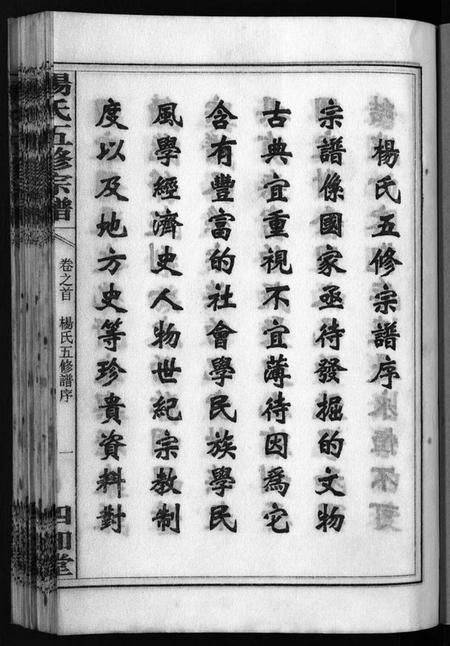 楊氏五修宗譜序
宗譜係國家亟待發掘的文物
古典宜重視不宜薄待因爲它
含有豐富的社會學民族學民
風學經濟史人物世紀宗教制
度以及地方史等珍貴資料對
楊氏五修宗譜
卷之首 楊氏五修譜序
一
四知堂